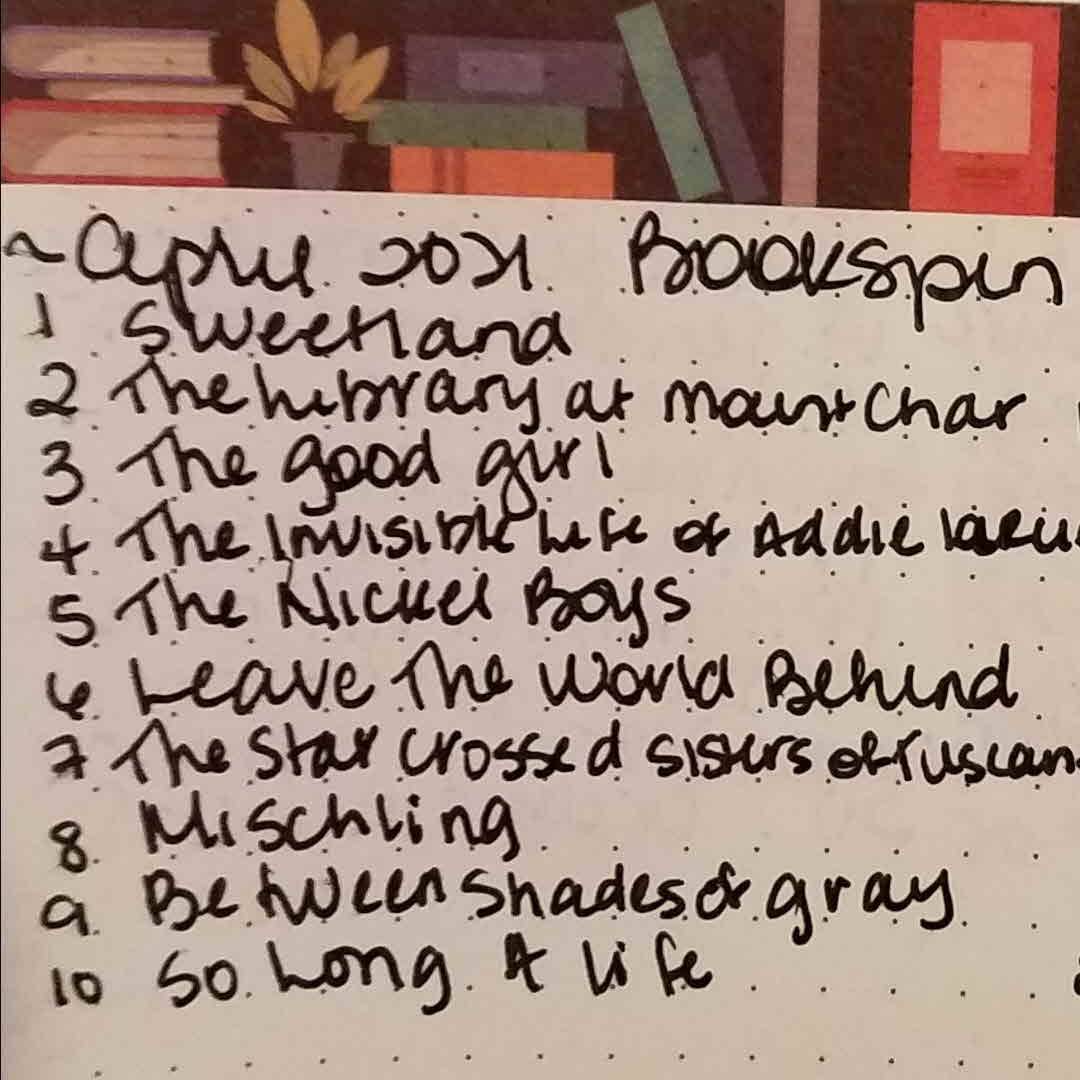 ~ April 2021 Bookspin
1 Sweetland
2 The Library at Mount Char
3. The good girl
4. The Invisible Life of Addie laru
5 The Nickel Boys
6. Leave The World Behind
7 The Star Crossed Sisters of Tuscan
8. Mischling
9. Between Shades of gray
10 So Long A Life